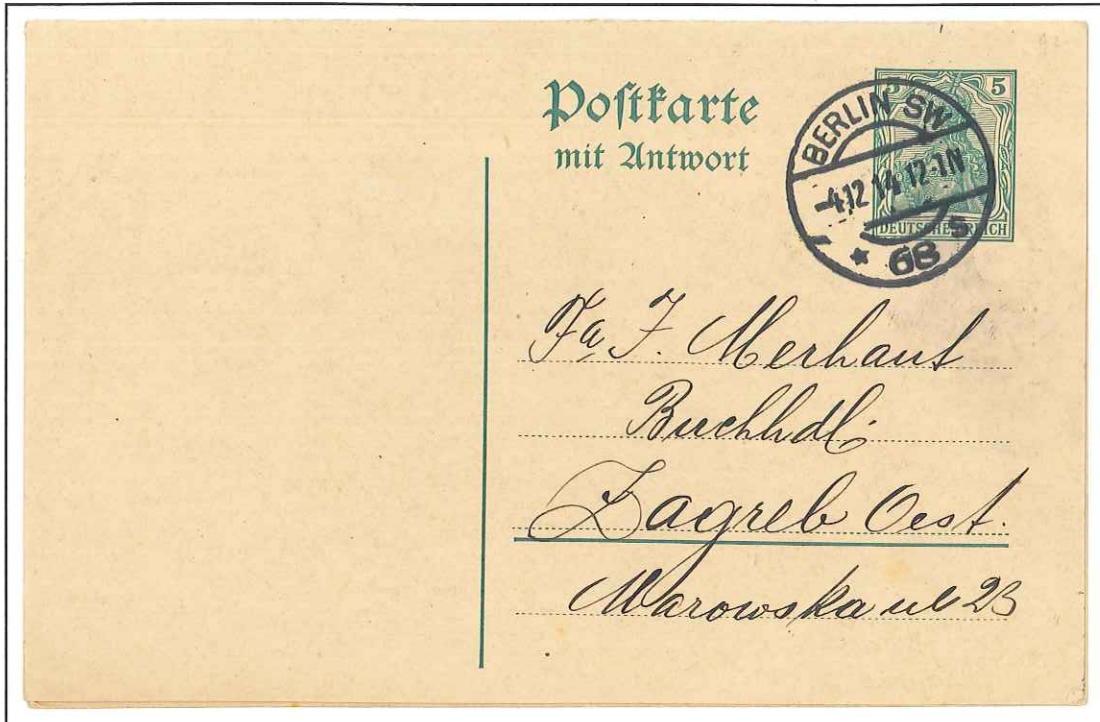 Postkarte
mit Antwort
5 5
DEUTSCHES REICH
BERLIN SW
-4.12 14 12-1N
* 68 s
Fa J. Merhaut
Buchhdl.
Zagreb Oest.
Marowska ul 23